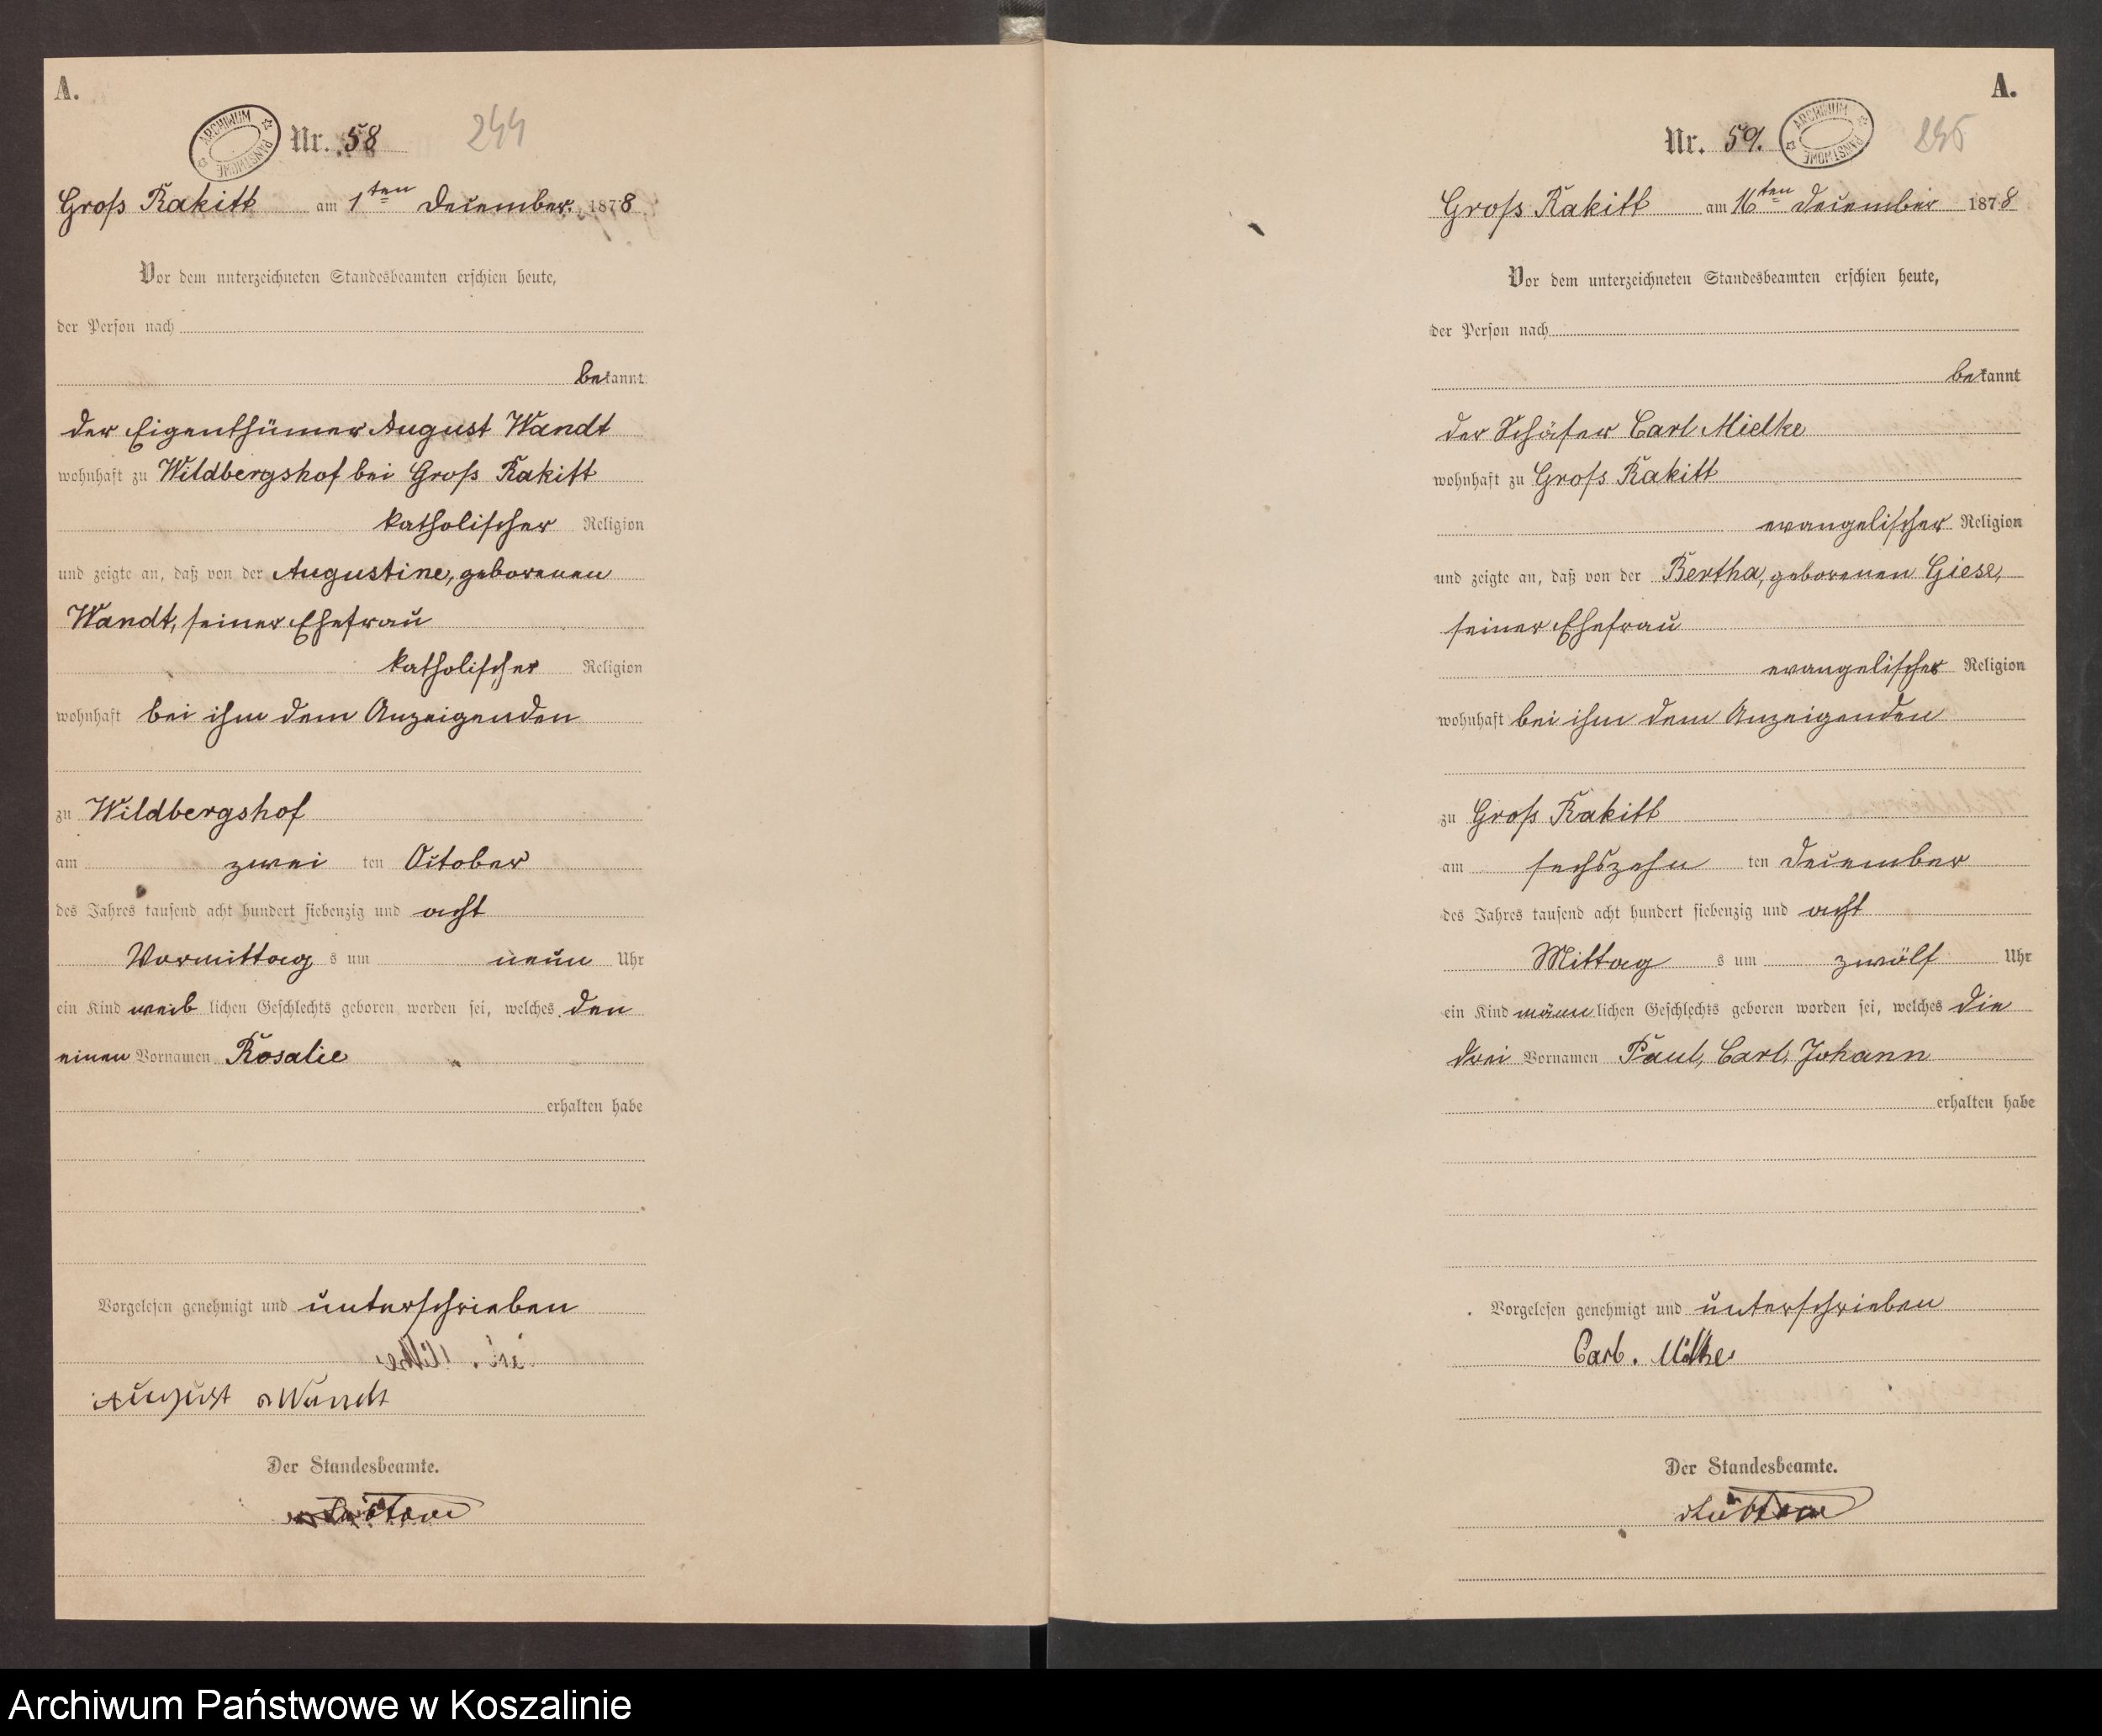 A.
ARCHIWUM PAŃSTWOWE
Nr. 58
244
Groß Rakitt am 1ten December. 1878
Vor dem unterzeichneten Standesbeamten erschien heute,
der Person nach
bekannt
der Eigenthümer August Wandt
wohnhaft zu Wildbergshof bei Groß Rakitt
katholischer Religion
und zeigte an, daß von der Augustine, geborenen
Wandt, seiner Ehefrau
katholischer Religion
wohnhaft bei ihm dem Anzeigenden
zu Wildbergshof
am zwei ten October
des Jahres tausend acht hundert siebenzig und acht
Vormittag s um neun Uhr
ein Kind weib lichen Geschlechts geboren worden sei, welches den
einen Vornamen Rosalie
erhalten habe
Vorgelesen genehmigt und unterschrieben
August Wandt
Der Standesbeamte.
A.
Nr. 59.
ARCHIWUM PAŃSTWOWE
245
Groß Rakitt am 16ten December 1878
Vor dem unterzeichneten Standesbeamten erschien heute,
der Person nach
bekannt
der Schäfer Carl Mielke
wohnhaft zu Groß Rakitt
evangelischer Religion
und zeigte an, daß von der Bertha, geborenen Giese,
seiner Ehefrau
evangelischer Religion
wohnhaft bei ihm dem Anzeigenden
zu Groß Rakitt
am sechszehn ten December
des Jahres tausend acht hundert siebenzig und acht
Mittag s um zwölf Uhr
ein Kind männ lichen Geschlechts geboren worden sei, welches die
drei Vornamen Paul, Carl, Johann
erhalten habe
Vorgelesen genehmigt und unterschrieben
Carl. Milke
Der Standesbeamte.
Archiwum Państwowe w Koszalinie